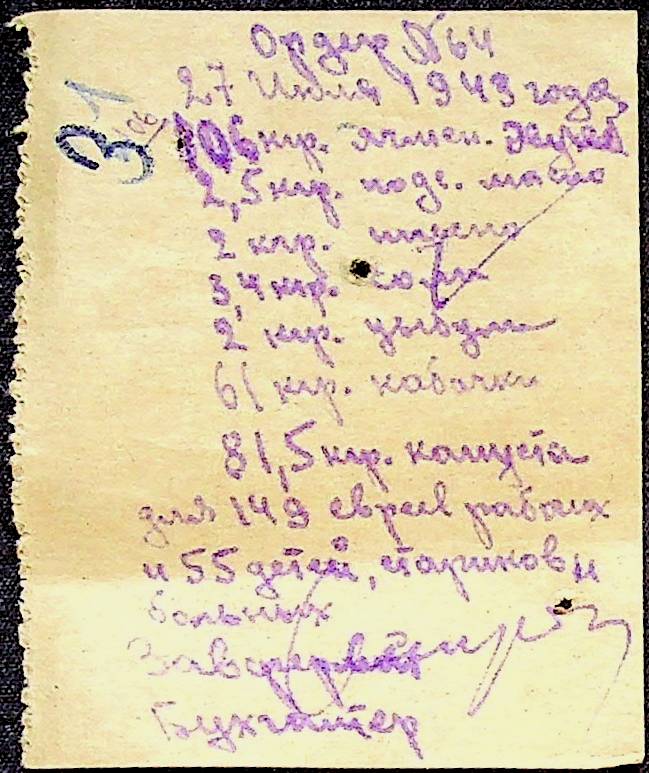 Ордер №64
27 Июля 1943 года
31
106 кгр. ячмен.
2,5 кгр. подс. масло
2 кгр. пшено
3,4 кгр. соли
2 кгр. цыбули
61 кгр. кабачки
81,5 кгр. капуста
для 149 евреев рабочих
и 55 детей, стариков и
больных
Завфермой
Бухгалтер